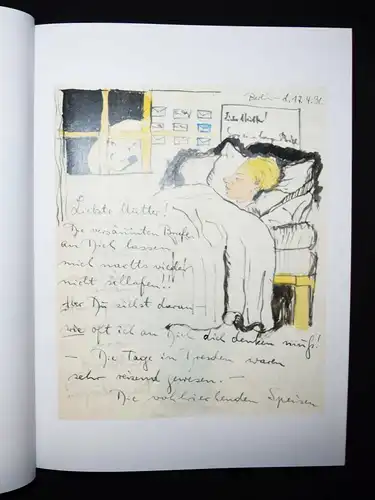 Berlin d. 17.4.31.
Liebe Mutter!
Liebste Mutter!
Die versäumten Briefe
an Dich lassen
mich nachts wieder
nicht schlafen!!
Aber Du siehst daran
wie oft ich an Dich denken muß!
– Die Tage in Dresden waren
sehr reizend gewesen. –
Die wohlschmeckenden Speisen